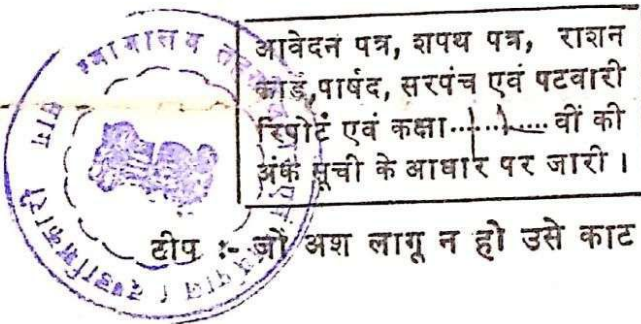 आवेदन पत्र, शपथ पत्र, राशन
कार्ड, पार्षद, सरपंच एवं पटवारी
रिपोर्ट एवं कक्षा............वीं की
अंक सूची के आधार पर जारी ।
टीप :- जो अश लागू न हो उसे काट